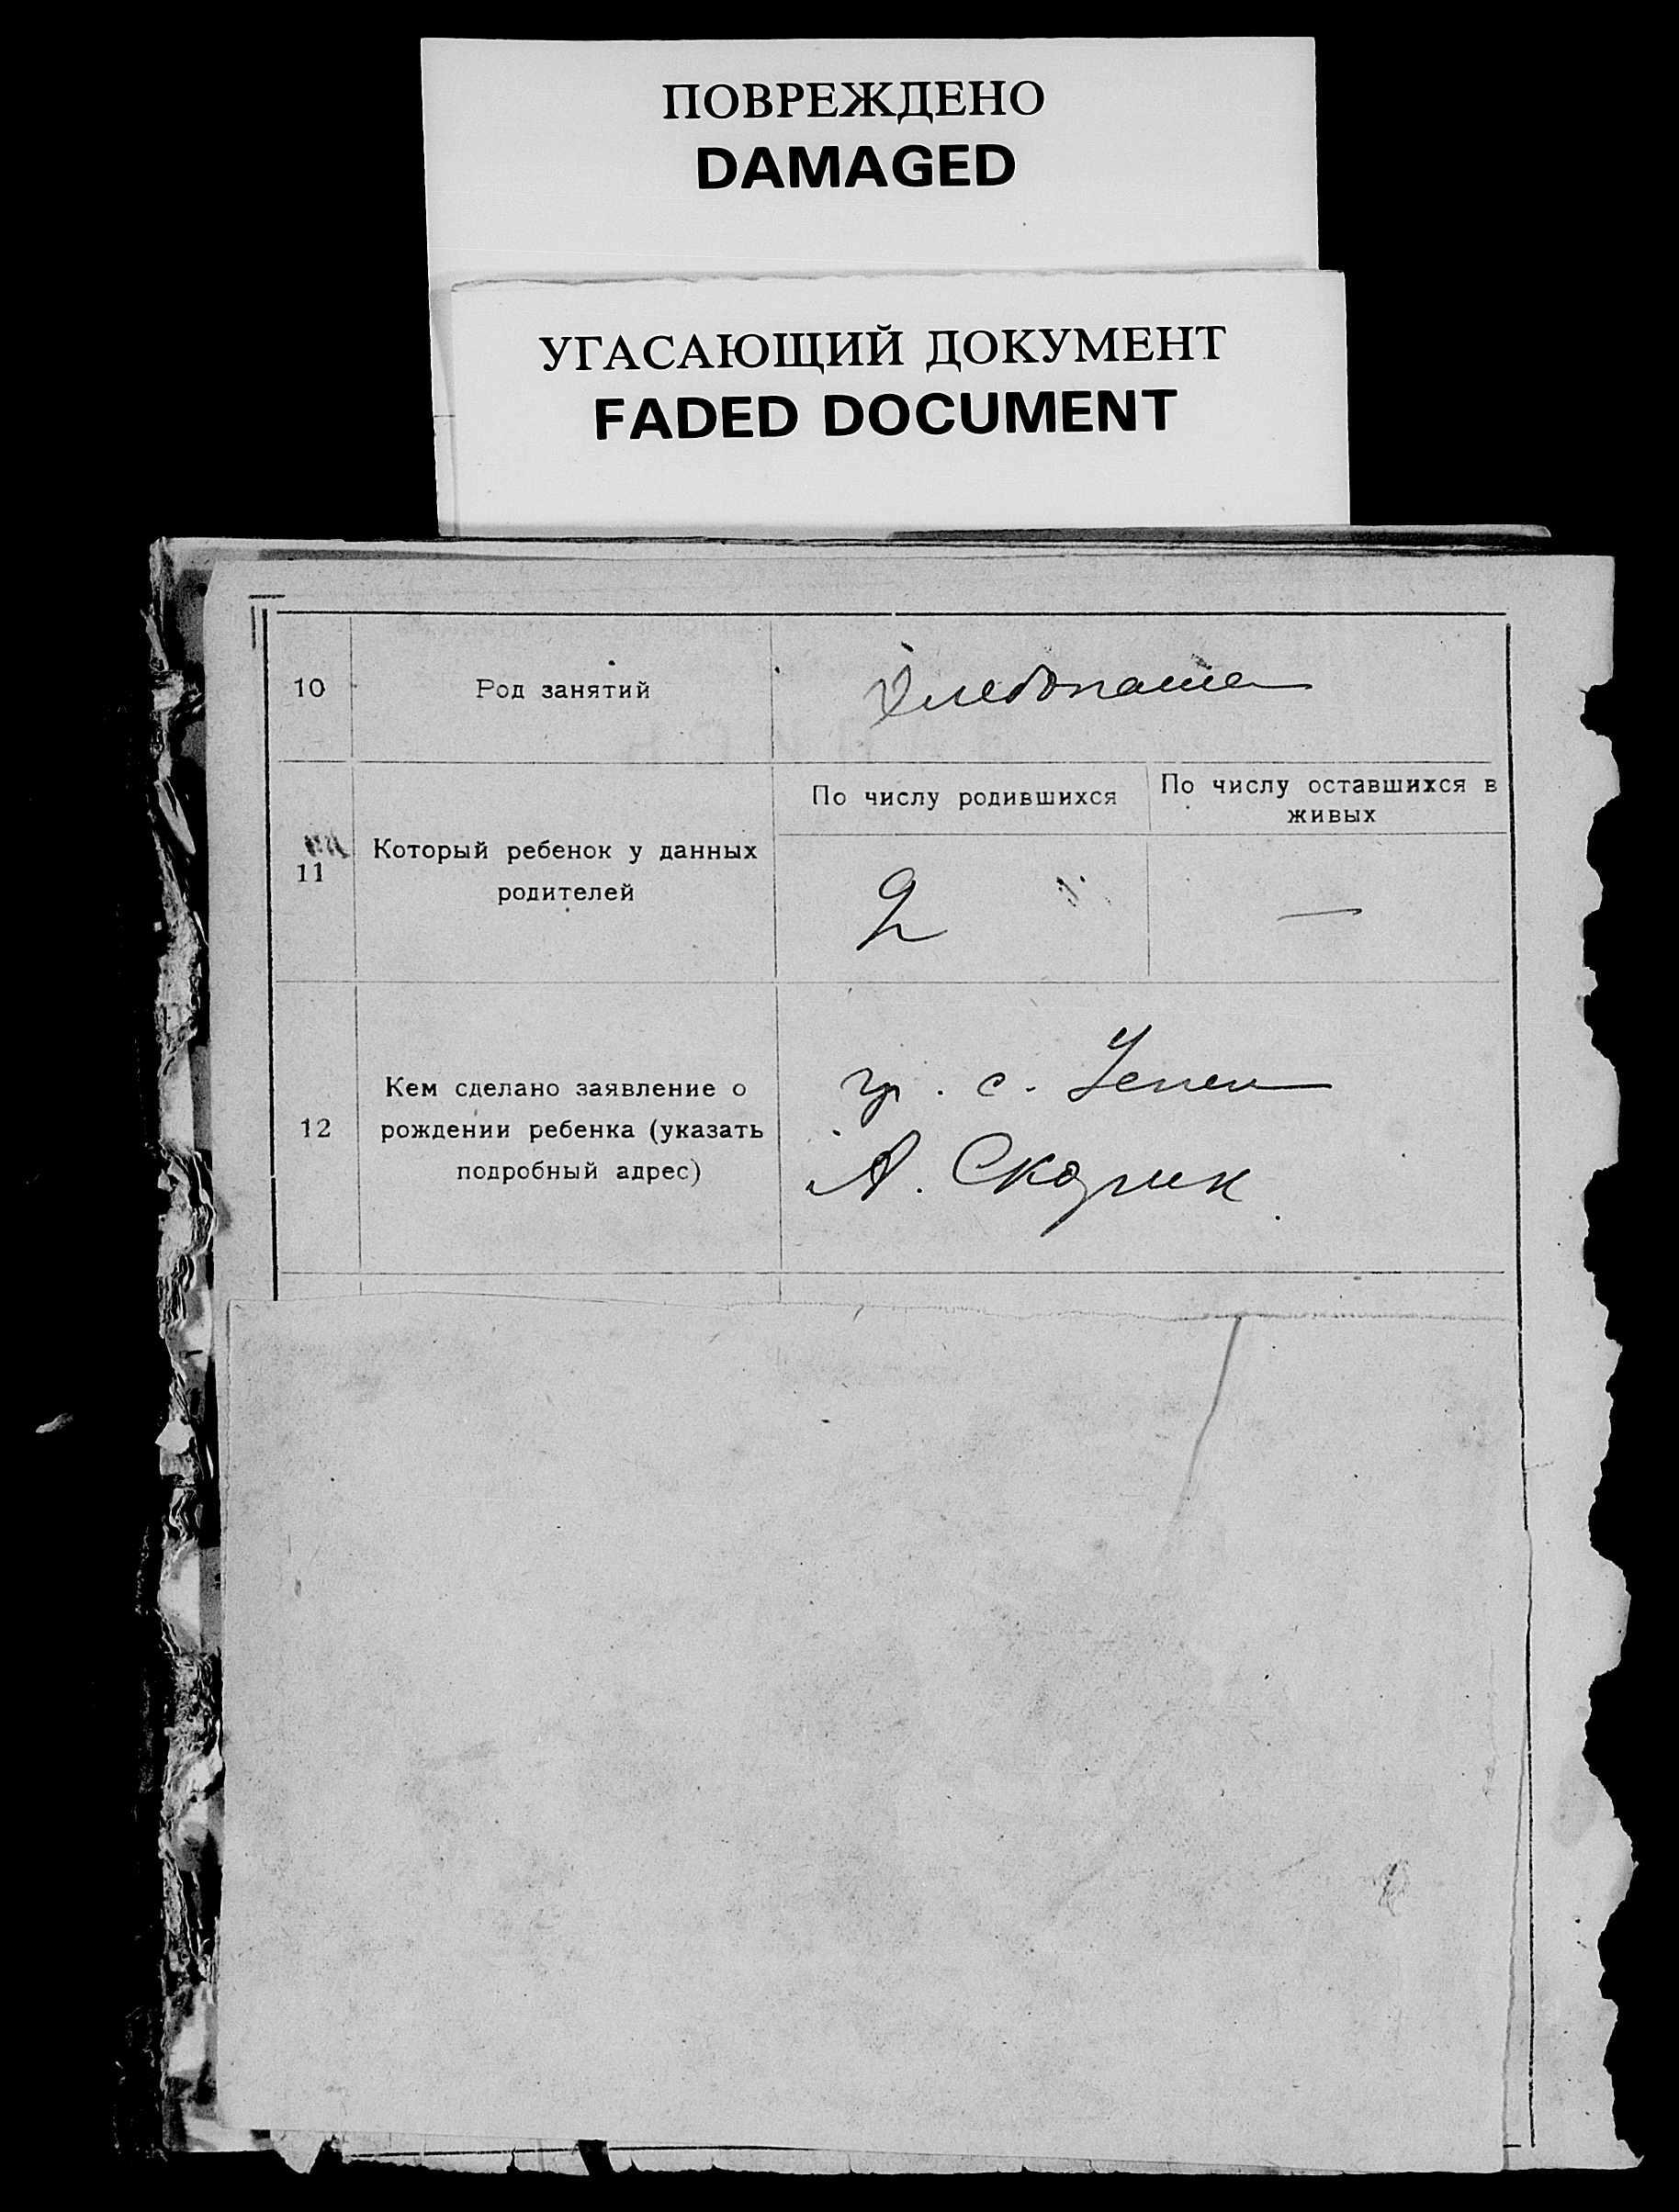 ПОВРЕЖДЕНО
DAMAGED
УГАСАЮЩИЙ ДОКУМЕНТ
FADED DOCUMENT
10
Род занятий
Хлебопаше
11
Который ребенок у данных
родителей
По числу родившихся
По числу оставшихся в
живых
2
—
12
Кем сделано заявление о
рождении ребенка (указать
подробный адрес)
гр. с. Успен
А. Скорик